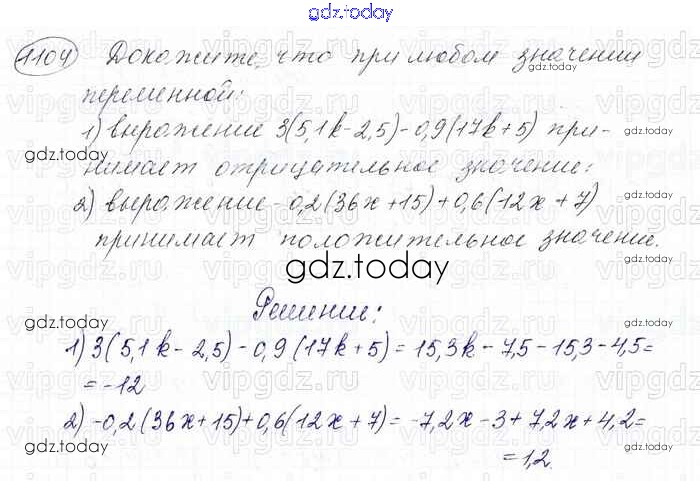 gdz.today
1104 Докажите, что при любом значении
gdz.today
переменной:
1) выражение 3(5,1k-2,5)-0,9(17k+5) при-
gdz.today
нимает отрицательное значение:
gdz.today
2) выражение -0,2(36x+15)+0,6(12x+7)
принимает положительное значение.
gdz.today
gdz.today
Решение:
gdz.today
1) 3(5,1k-2,5)-0,9(17k+5)=15,3k-7,5-15,3-4,5=
=-12
gdz.today
2) -0,2(36x+15)+0,6(12x+7)=-7,2x-3+7,2x+4,2=
gdz.today
=1,2
gdz.today